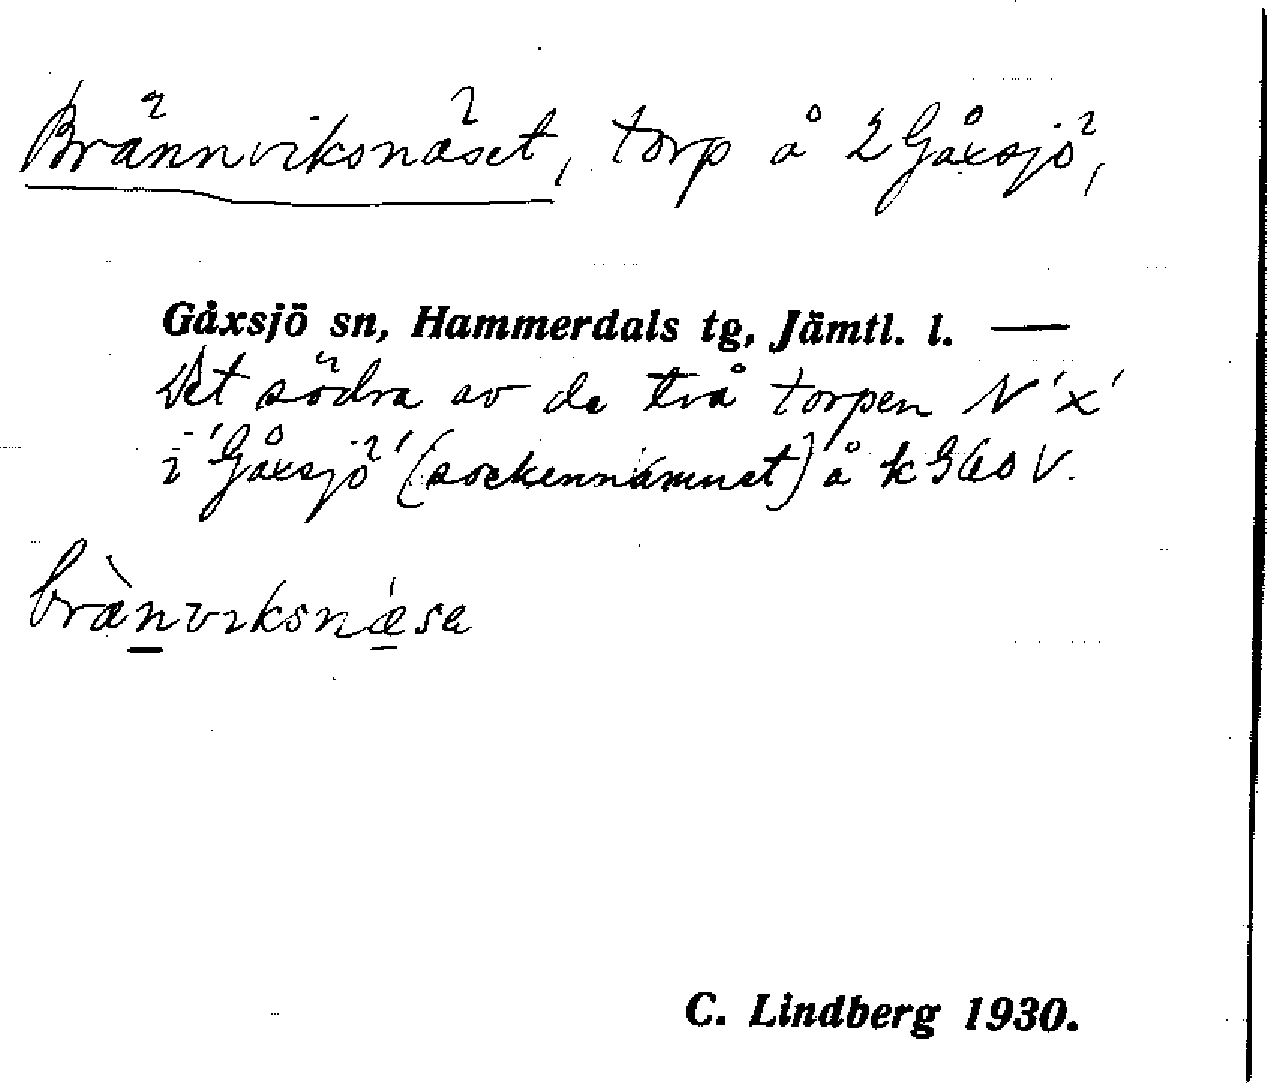 Brännviksnäset, torp å 2 Gåxsjö,
Gåxsjö sn, Hammerdals tg, Jämtl. l. —
Det södra av de två torpen N 'x'
i 'Gåxsjö' (sockennamnet) å k 960 V.
brànviksnǽsa
C. Lindberg 1930.